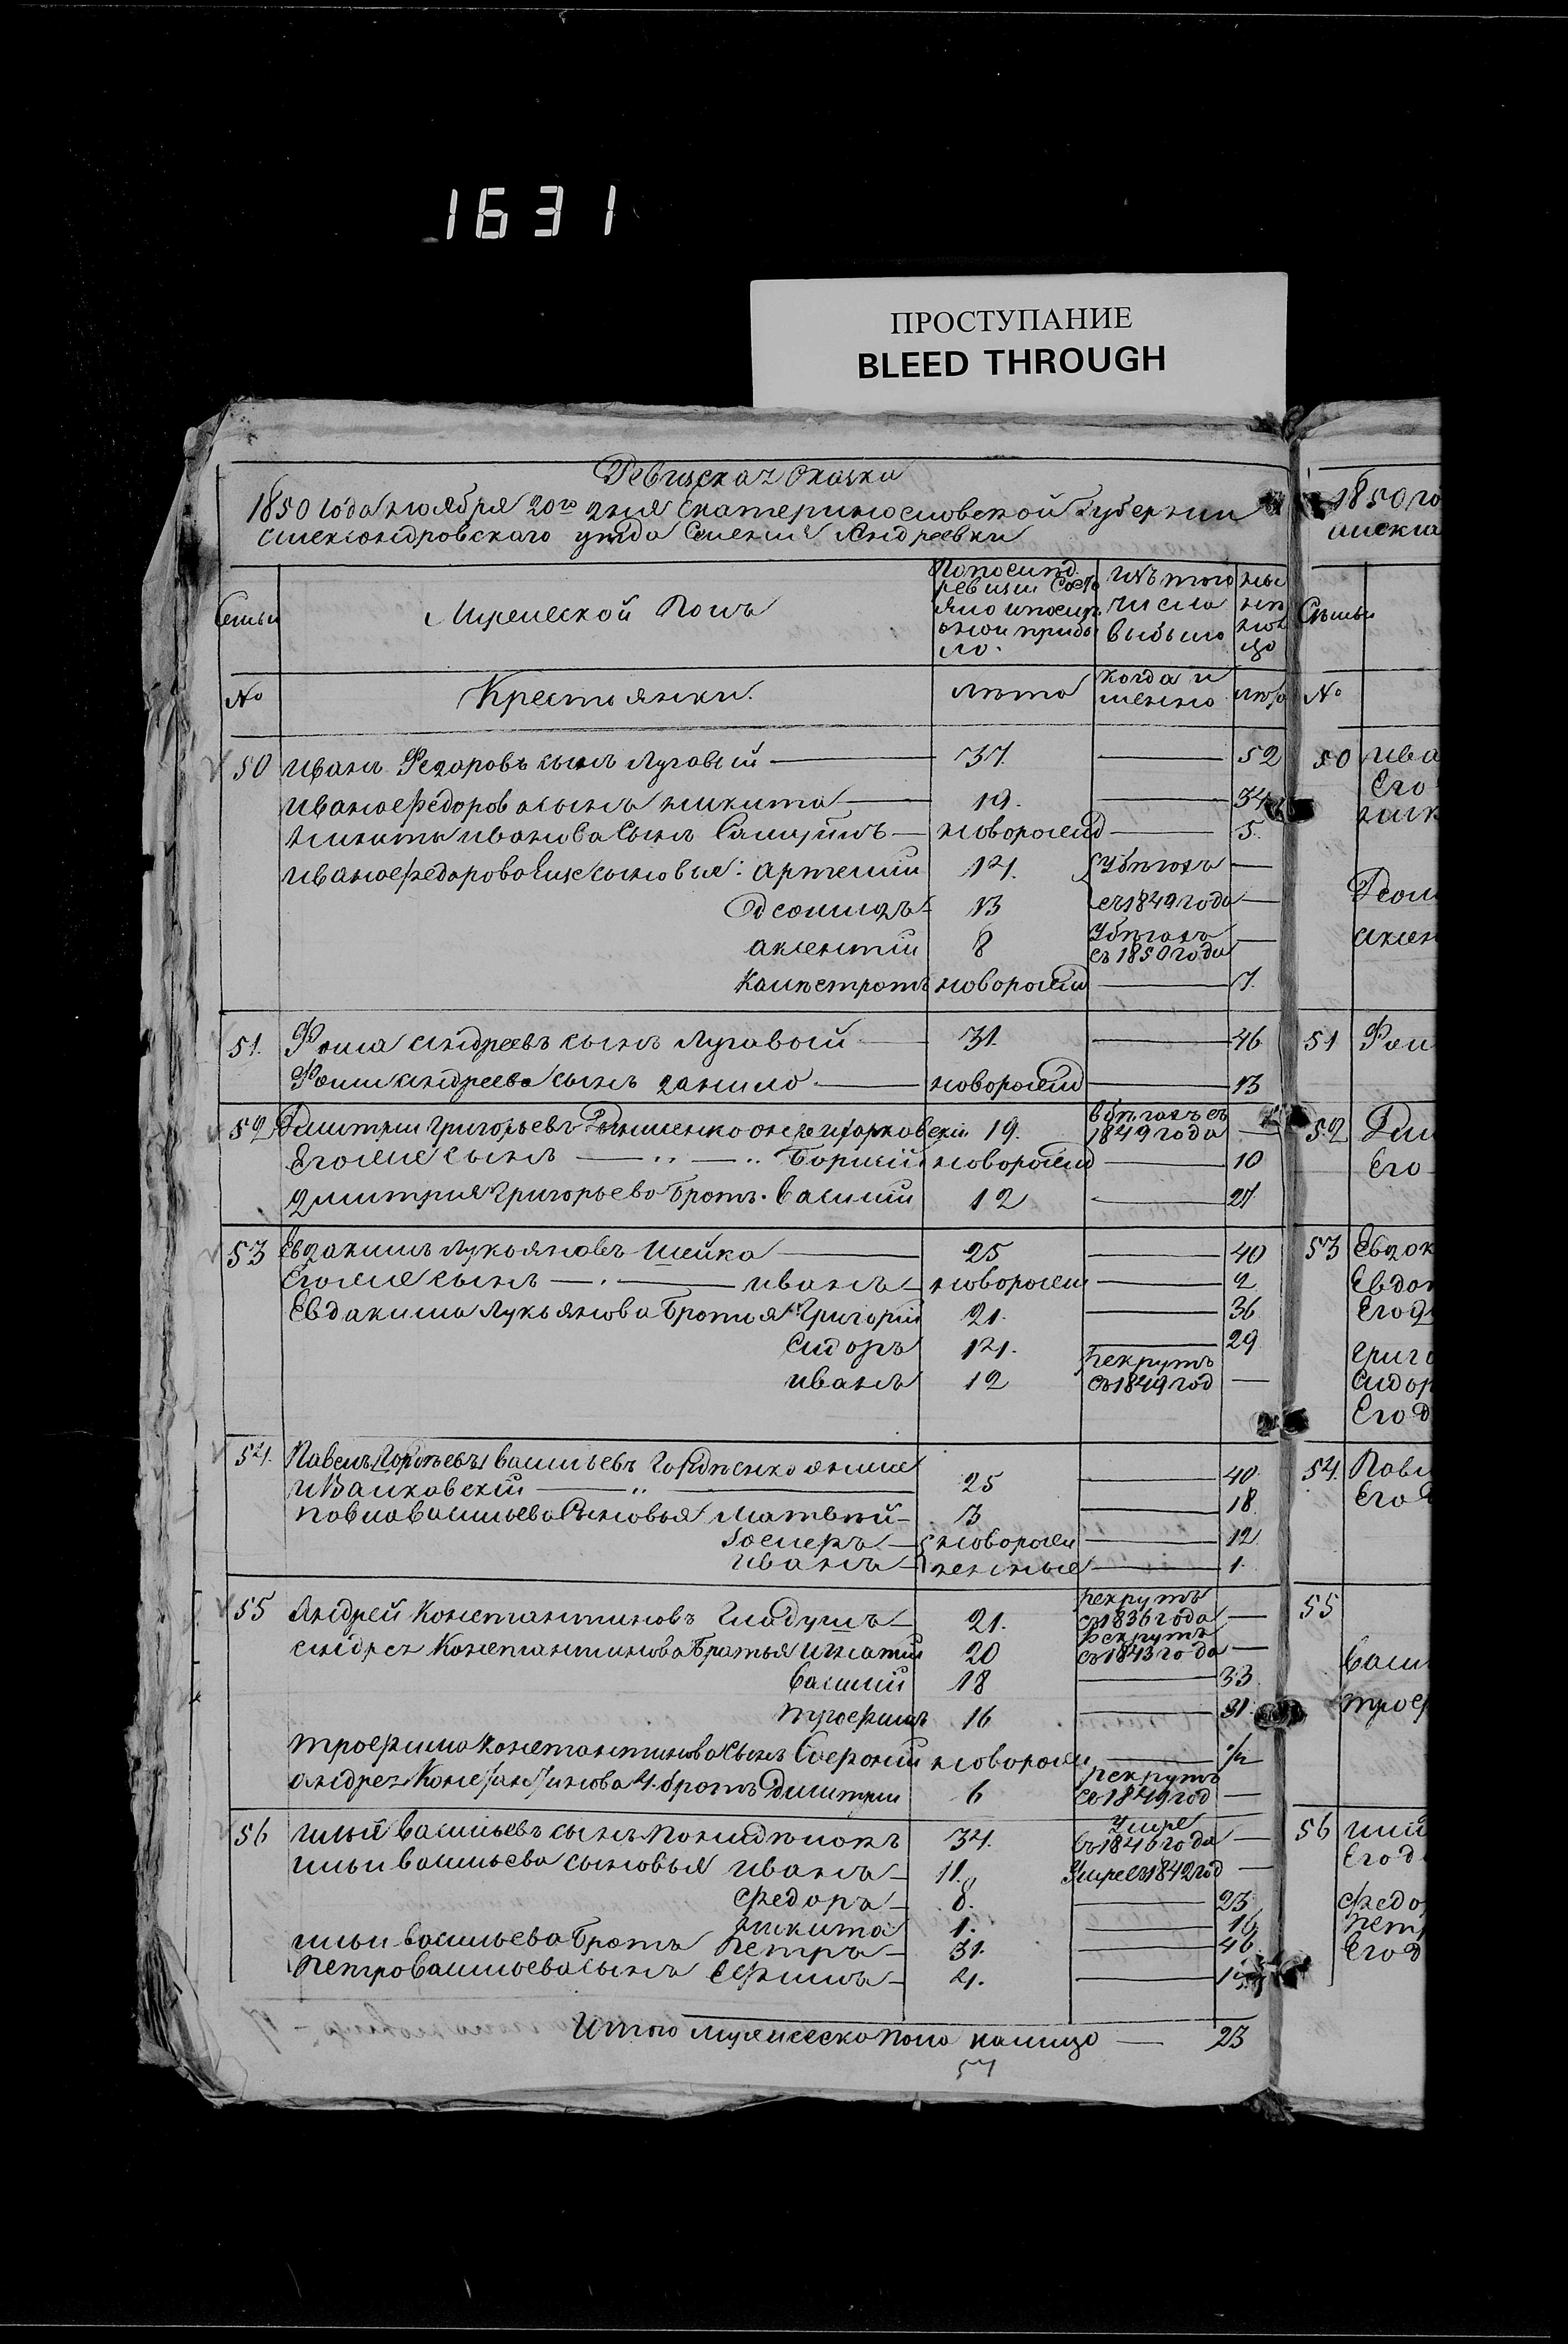 1631
ПРОСТУПАНИЕ
BLEED THROUGH
Ревизская Сказка
1850 года ноября 20го дня Екатеринославской Губернии
Александровскаго уезда Андреевки
Семьи
Мужеской Полъ
По последн. ревизии состояло и после оной прибыло.
Изъ того числа выбыло
ныне на лицо
№
Крестьянки.
лета
когда и менно
лета
50 Иванъ Федоровъ сынъ Луговый — 37. — 52
Ивана Федорова сынъ Никита — 19. — 34
Никиты Иванова Сынъ — новорожд — 5.
Ивана Федорова Еще сыновья: Артемий 14. В бегахъ —
13 съ 1849 года —
Аксентий 8 В бегахъ съ 1850 года —
Калистратъ новорожд — 7.
51. Фома Андреевъ сынъ Луговый — 31. — 46
Фомы Андреева сынъ Данило — новорожд — 13
52 Дмитрий Григорьевъ онже 19. в бегахъ съ 1849 года —
Его же сынъ — новорожд — 10
Дмитрия Григорьева братъ Василий 12 — 27
53 Евдокимъ Лукьяновъ Шейка — 25 — 40
Его же сынъ — Иванъ — новорожд — 2
Евдакима Лукьянова Братья 1. Григорий 21. — 36
Сидоръ 14. — 29
Иванъ 12 рекрутъ въ 1849 год —
54. Павелъ Васильевъ
25 — 40
Павла Васильева Сыновья Матвей — 3 — 18
новорож — 12
Иванъ — денные — 1.
55 Андрей Константиновъ Гладушъ — 21. рекрутъ въ 1836 года —
Андрея Константинова Братья Игнатий 20 рекрутъ въ 1843 года —
Василий 18 — 33
Трофимъ 16 — 31.
Трофима Константинова Сынъ новорож — 1/2
Андрея Константинова 4. братъ Дмитрий 6 рекрутъ въ 1849 год —
56 Илья Васильевъ сынъ 34. Умре въ 1846 года —
Ильи Васильева сыновья Иванъ — 11. Умре въ 1842 год —
Федоръ — 8. — 23
Никита 1. — 16
Ильи Васильева Братъ Петръ — 31. — 46
Петра Васильева сынъ Ефимъ — 4. —
Итого мужеска пола налицо — 23
57
1850 го
№
50 Ива
Его
51 Фом
52 Дми
Его
53 Евдок
Евдок
Его д
Григо
Сидор
Его д
54. Павл
Его
55
Васи
Троф
56 Или
Его д
Федо
Петр
Его д